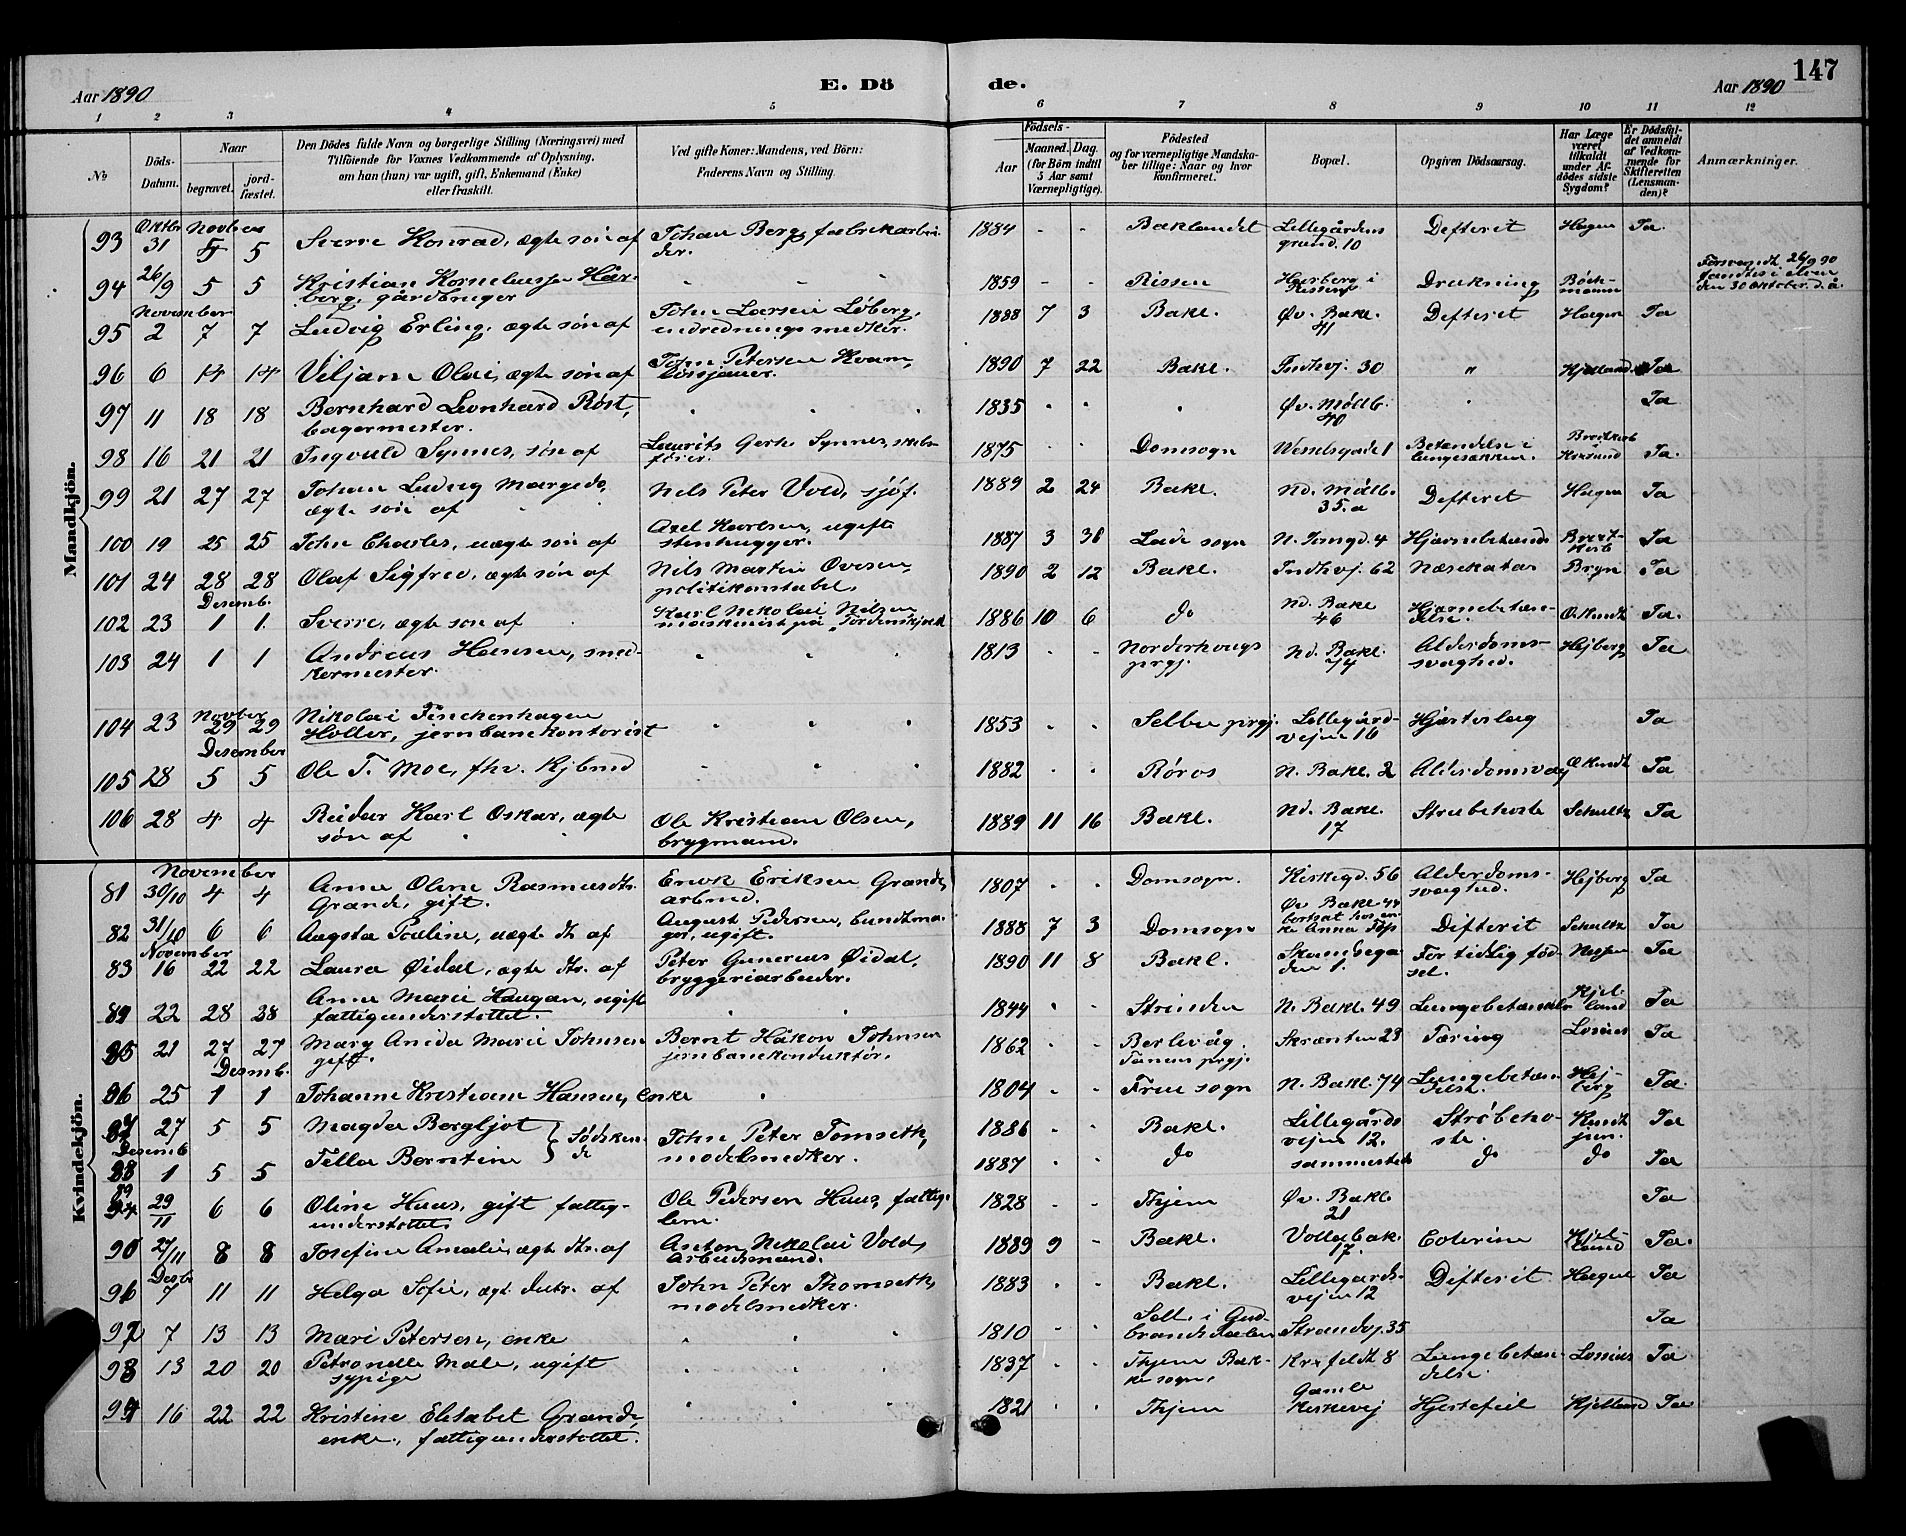 147
Aar 1890 E. Dö de. Aar 1890
1 2 3 4 5 6 7 8 9 10 11 12
№
Döds-Datum.
Naar begravet. jordfæstet.
Den Dödes fulde Navn og borgerlige Stilling (Næringsvei) med
Tilföiende for Voxnes Vedkommende af Oplysning,
om han (hun) var ugift, gift, Enkemand (Enke)
eller fraskilt.
Ved gifte Koner: Mandens, ved Börn:
Faderens Navn og Stilling.
Födsels-
Aar Maaned. Dag.
(for Börn indtil
5 Aar samt
Værnepligtige).
Födested
og for værnepligtige Mandska-
ber tillige: Naar og hvor
konfirmeret.
Bopæl.
Opgiven Dödsaarsag.
Har Læge
været
tilkaldt
under Af-
dödes sidste
Sygdom?
Er Dödsfal-
det anmeldt
af Vedkom-
mende for
Skifteretten
(Lensman-
den)?
Anmærkninger.
Mandkjön.
Oktbr Novber
93 31 5 5 Sverre Konrad, ægte søn af Johan Berg, fabrikarbei-
der. 1884 - - Baklandet Lillegårdens
grund. 10 Defterit Hagen Ja.
94 26/9 5 5 Kristian Korneliussen Hår-
berg, gårdbruger 1859 - - Rissen Harberg i
Rissen Drukning Böck-
mann Forsvandt 26/9 90
fandtes i elven
den 30 Oktober d. å.
November
95 2 7 7 Ludvig Erling, ægte søn af John Larsen Løberg,
indrednings snedker. 1888 7 3 Bakl. Øv. Bakl.
41 Defterit Hagen Ja
96 6 14 14 Viljam Olai, ægte søn af John Petersen Kvam,
1890 7 22 Bakl. Indhvj. 30 " Kjelland Ja
97 11 18 18 Bernhard Leonhard Røst,
bagermester. 1835 Øv. Möllb.
40 Ja
98 16 21 21 Ingvald Synnes, søn af Laurits Gerh. Synnes, skibs-
fører. 1875 Domsogn Wesselsgade 1 Betændelse i
lungesækken. Ja.
99 21 27 27 Johan Ludvig
ægte søn af Nils Peter Vold, sjöf. 1889 2 24 Bakl. Nd. Mölb.
35. a Defterit Hagen Ja
100 19 25 25 John Charles, uægte søn af Axel Karlsen, ugift
stenhugger. 1887 3 Lade sogn Hjernebetænd. Ja
101 24 28 28 Olaf Sigfred, ægte søn af Nils Martin Ovesen,
politikonstabel. 1890 2 12 Bakl. Indhvj. 62 Næsekatar Bryn Ja
Desemb.
102 23 1 1 Sverre, ægte søn af Karl Nikolai Nilsen
maskinist på "Tordenskjold" 1886 10 6 do Nd. Bakl
46 Hjernebetæn-
delse. Ja.
103 24 1 1 Andreas Hansen, sned-
kermester. 1813 - - Norderhougs
prgj. Nd. Bakl.
74 Alderdoms-
svaghed. Hejberg Ja
Novber
104 23 29 29 Nikolai Finckenhagen
Holler, jernbanekontorist 1853 Selbu prgj. Lillegård-
vejen 16 Hjerteslag Ja
Desember
105 28 5 5 Ole T. Moe, fhv. Kjbmd 1882 Røros N. Bakl. 2 Alderdomsvag Ja
106 28 4 4 Reidar Karl Oskar, ægte
søn af Ole Kristian Olsen,
brygmand. 1889 11 16 Bakl. Nd. Bakl.
17 Strubehoste Schultz Ja
Kvindekjön.
November
81 30/10 4 4 Anne Oline Rasmusdtr.
Grande, gift. Enok Eriksen Grande,
arbmd. 1807 Domsogn. Kirkegd. 56 Alderdoms-
svaghed. Hejberg Ja
82 31/10 6 6 Augsta Pauline, uægte dtr. af August Pedersen, bundtma-
ger, ugift. 1888 7 3 Domsogn Øv Bakl 44
bortsat hos en-
ke Anna Difterit Schultz Ja
November
83 16 22 22 Laura Øidal, ægte dtr. af Peter Gunerius Øidal,
bryggeriarbeider. 1890 11 8 Bakl. For tidlig föd-
sel. Ja
84 22 28 28 Anne Marie Haugan, ugift
fattigunderstöttet. 1844 Strinden N. Bakl. 49 Kjel-
land Ja
85 21 27 27 Mary Anida Marie Johnsen
gift. Bernt Håkon Johnsen
jernbanekonduktör. 1862 Berlevåg
Tanens prgj. Skrænten 23 Tæring Lossius Ja
Desemb.
86 25 1 1 Johanne Kristiane Hansen, enke 1804 Frue sogn N. Bakl. 74 Lungebetæn-
delse. Hej-
berg Ja.
87 27 5 5 Magda Bergljot } Södsken-
de John Peter Tomseth,
modelsnedker. 1886 Bakl. Lillegårds
vejen 12. Strøbeho-
ste. Ja
Desemb
88 1 5 5 Tella Berntine 1887 do sammesteds do do Ja
89 29/11 6 6 Oline Huus, gift fattig-
understöttet. Ole Pedersen Huus, fattig-
lem. 1828 Thjem Øv. Bakl
21 Ja
90 27/11 8 8 Josefine Amalie, ægte dtr. af Anton Nikolai Vold,
Arbeidsmand. 1889 9 - Bakl. Vollabak.
17. Colerine Kjel-
land Ja.
Desbr
91 7 11 11 Helga Sofie, ægt. dutr. af John Peter Thomseth,
modelsnedker. 1883 Bakl. Lillegårds-
vejen 12 Difterit Hagen Ja
92 7 13 13 Mari Petersen, enke 1810 Sell i Gud-
brandsdalen Strandvj. 35 Ja
93 13 20 20 Petronelle Male, ugift
sypige 1837 Thjem Bak-
ke sogn. Lungebetæn-
delse. Lossius Ja
94 16 22 22 Kristine Elisabet Grande,
enke, fattigunderstöttet. 1821 Thjem Gamle
Kirkevej Hjertefeil Kjelland Ja